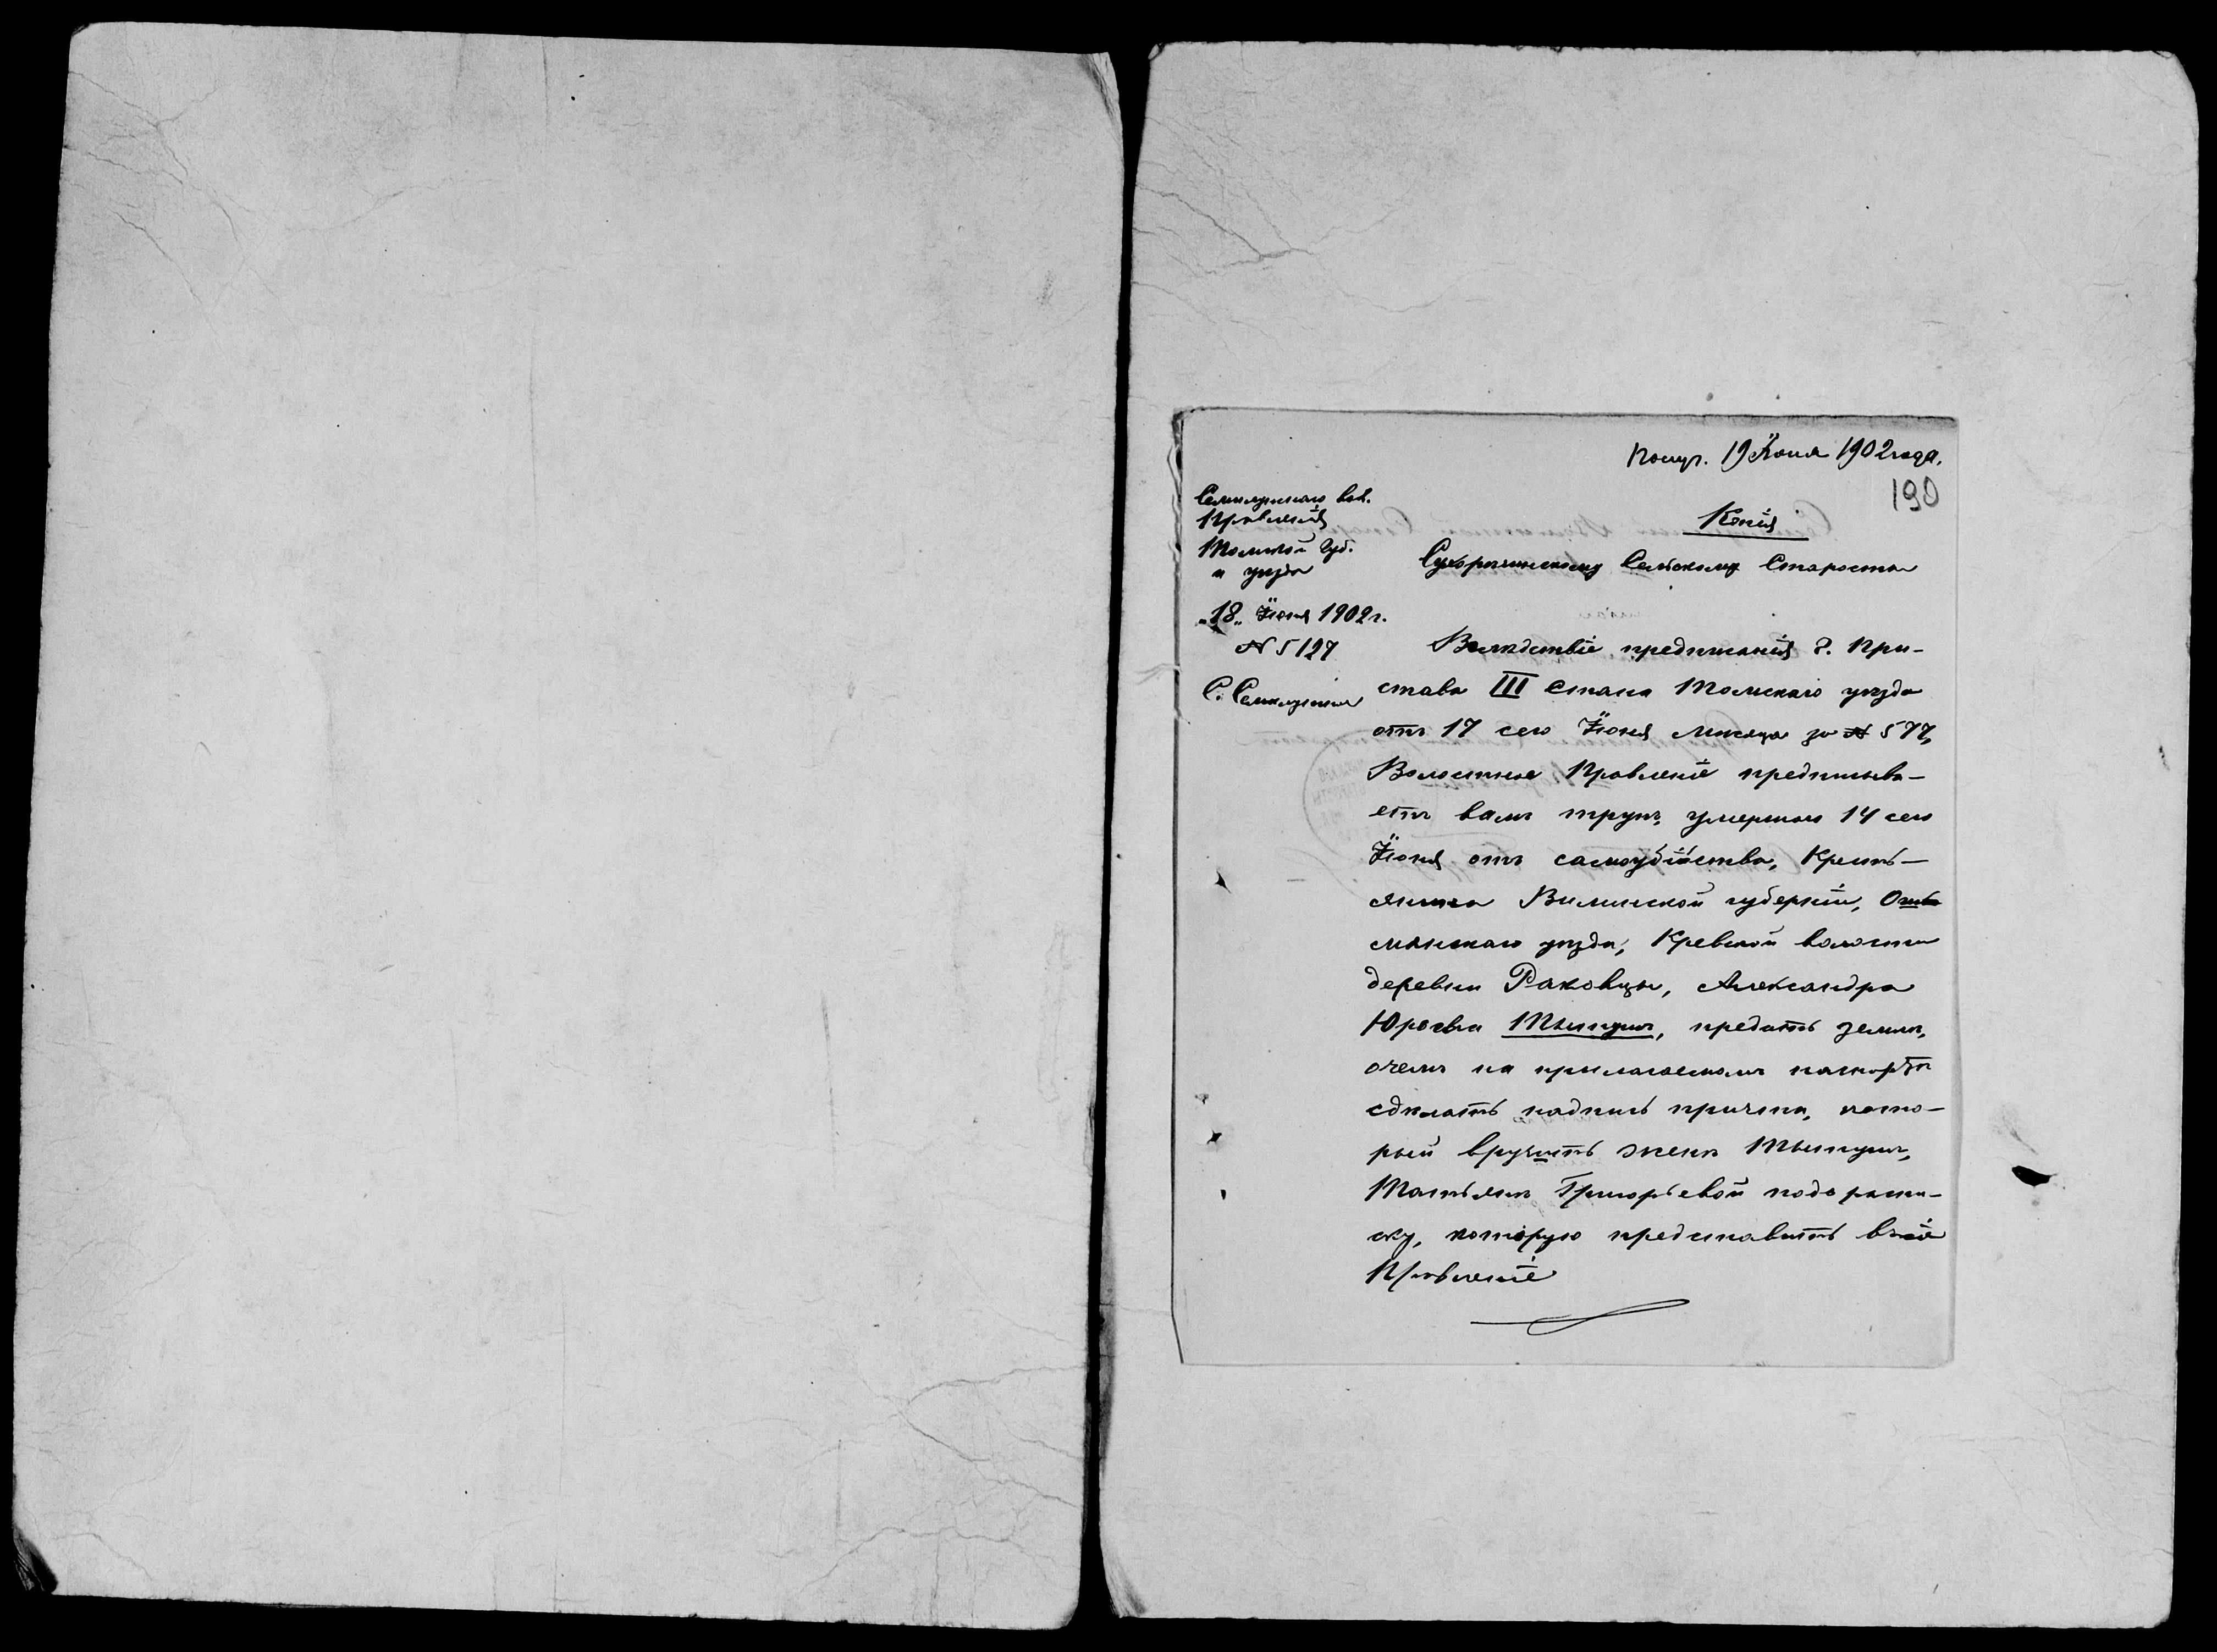 Получ. 19 Июня 1902 года.
190
Семилужнаго вол.
Правленія
Томской Губ.
и уѣзда
„18„ Іюня 1902 г.
№ 5127
С. Семилужное
Копія
Сухорѣченскому Сельскому Старостѣ
Вслѣдствіе предписанія г. При-
става III стана Томскаго уѣзда
отъ 17 сего Іюня мѣсяца за № 577,
Волостное Правленіе предписыва-
етъ вамъ трупъ, умершаго 14 сего
Іюня отъ самоубійства, Кресть-
янина Виленской губерніи, Ош-
мянскаго уѣзда, Кревской волости
деревни Раковцы, Александра
Юрьева Тыпунъ, предать землѣ,
о чемъ на прилагаемомъ паспортѣ
сдѣлать надпись причта, кото-
рый вручить женѣ Тыпунъ,
Татьянѣ Григорьевой подъ распи-
ску, которую представить въ сіе
Правленіе